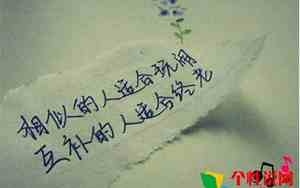 相似的人适合玩闹
互补的人适合终老
个性说网